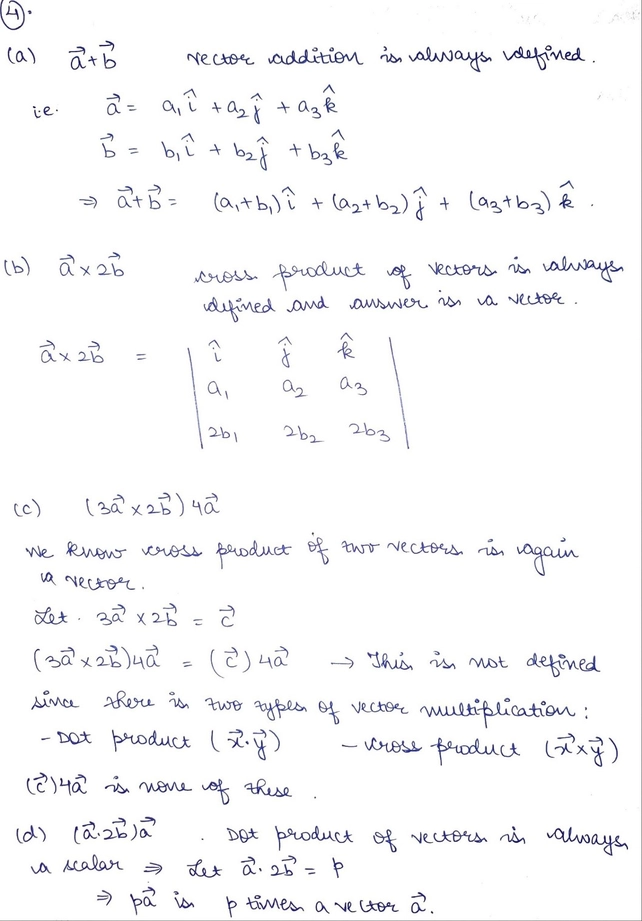 4.
(a) a⃗+b⃗ vector addition is always defined.
i.e. a⃗ = a₁î + a₂ĵ + a₃k̂
b⃗ = b₁î + b₂ĵ + b₃k̂
⇒ a⃗+b⃗ = (a₁+b₁)î + (a₂+b₂)ĵ + (a₃+b₃)k̂.
(b) a⃗ × 2b⃗ cross product of vectors is always
defined and answer is a vector.
a⃗ × 2b⃗ = | î ĵ k̂ |
| a₁ a₂ a₃ |
| 2b₁ 2b₂ 2b₃ |
(c) (3a⃗ × 2b⃗) 4a⃗
We know cross product of two vectors is again
a vector.
Let. 3a⃗ × 2b⃗ = c⃗
(3a⃗ × 2b⃗)4a⃗ = (c⃗) 4a⃗ → This is not defined
since there is two types of vector multiplication:
- Dot product (x⃗.y⃗) - cross product (x⃗×y⃗)
(c⃗)4a⃗ is none of these.
(d) (a⃗.2b⃗)a⃗. Dot product of vectors is always
a scalar ⇒ Let a⃗.2b⃗ = p
⇒ pa⃗ is p times a vector a⃗.